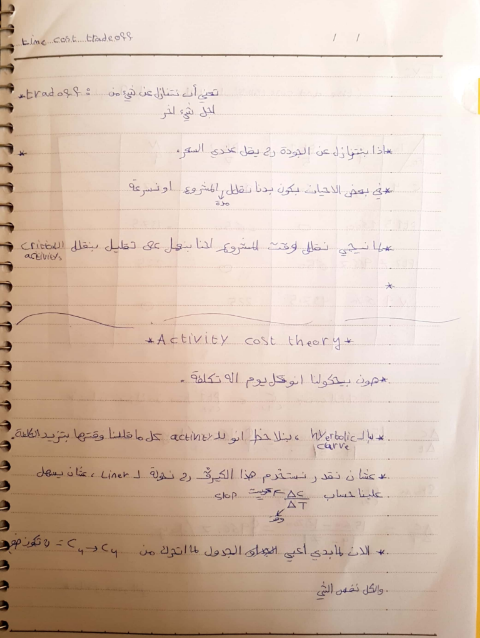 time cost tradeoff / /
*tradoff : تعني أن نتنازل عن شيء من
اجل شيء اخر
*اذا بتنازل عن الجودة رح يقل عندي السعر.
*في بعض الاحيان بكون بدنا نقلل المشروع او نسرعة
مدة
*لما نيجي نقلل وقت المشروع احنا بنعمل على تقليل بنقلل critical activitys
*
*Activity cost theory*
*هون بيحكولنا انو كل يوم اله تكلفة.
*بالـ hyberbolic curve ، بنلاحظ انو للـ activity كل ما قللنا وقتها بتزيد التكلفة.
*عشان نقدر نستخدم هذا الكيرف رح نحوله لـ Liner ، عشان يسهل
علينا حساب slop = ΔC
ΔT
وقت
*الان لما بدي أعبي الجدول لما اتحرك من C₄ → C₄ = 0 تكون
والكل نفس الشي